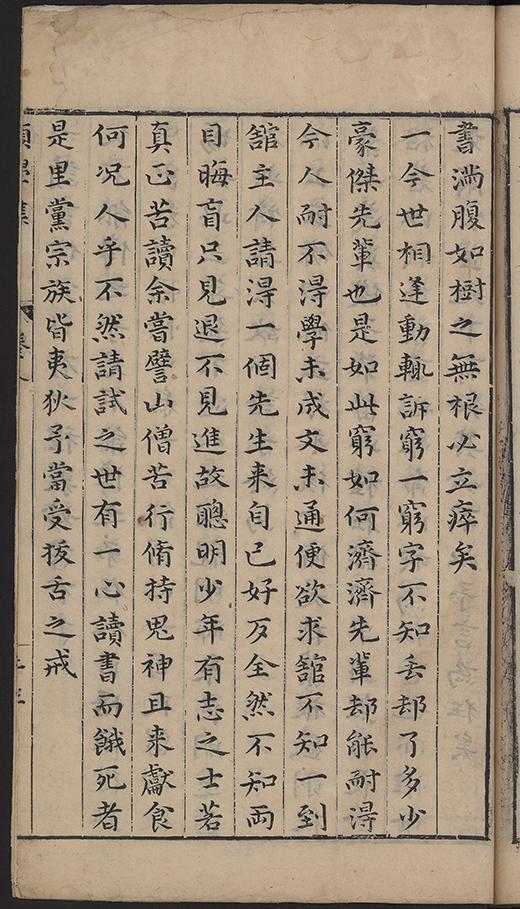 書滿腹如樹之無根必立瘁矣
一今世相逢動輒訴窮一窮字不知丢却了多少
豪傑先輩也是如此窮如何濟濟先輩却能耐得
今人耐不得學未成文未通便欲求舘不知一到
舘主人請淂一個先生来自己好歹全然不知兩
目晦盲只見退不見進故聰明少年有志之士若
真正苦讀余嘗譬山僧苦行脩持鬼神且来獻食
何况人乎不然請試之世有一心讀書而餓死者
是里黨宗族皆夷狄予當受拔舌之戒